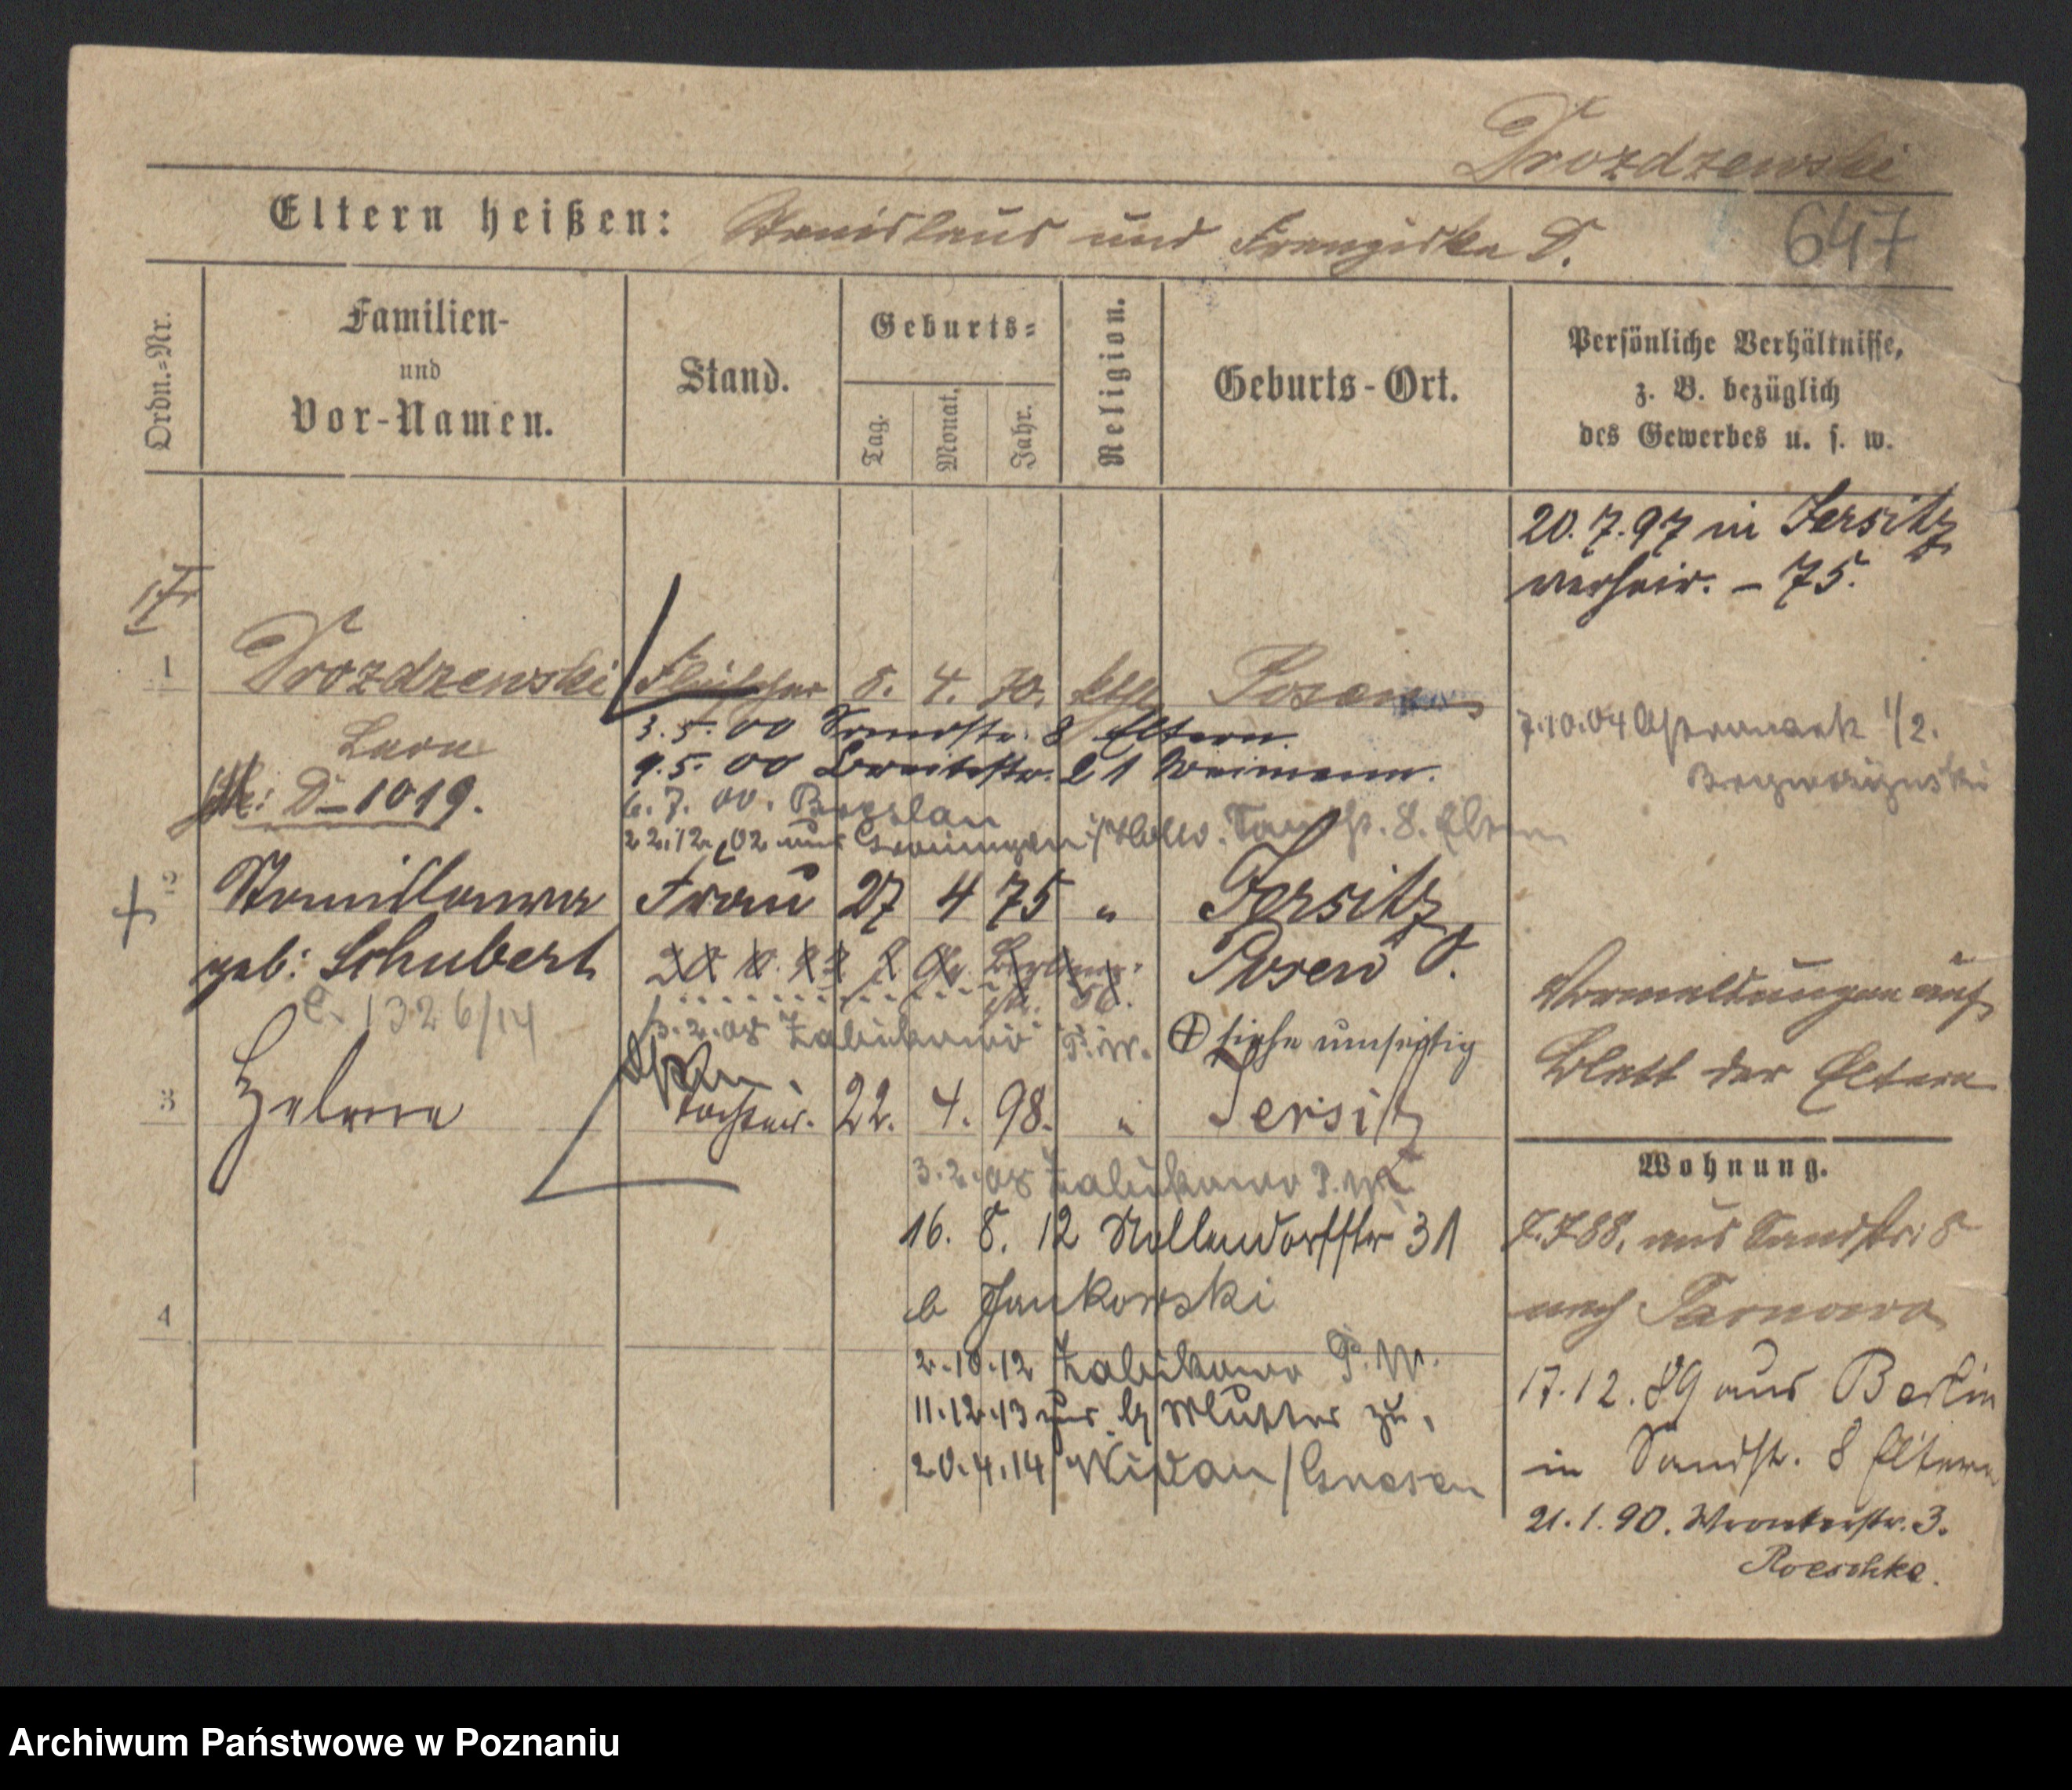 Drozdzewski
Eltern heißen: Stanislaus und Franziska D.
647
Ordn.-Nr.
Familien- und Vor-Namen.
Stand.
Geburts-
Tag.
Monat.
Jahr.
Religion.
Geburts-Ort.
Persönliche Verhältnisse,
z. B. bezüglich
des Gewerbes u. s. w.
20.7.97 in Jersitz
verheir. - 75.
1 Drozdzewski Fleischer 8. 4. 70. kth Posen
Leon
D-1019.
3.5.00 Sandstr. 8 Eltern.
9.5.00 Breitestr. 21
6.7.00. Breslau
22.12.02 aus
8. Eltern
7.10.04 1/2.
2 Stanislawa Frau 27 4 75 " Jersitz
geb: Schubert Posen O.
C. 1326/14
3.2.08 Zabikowo P.W.
siehe umseitig
Vormeldungen auf
Blatt der Eltern
3 Helene Tochter. 22. 4. 98. " Jersitz
3.2.08 Zabikowo P.W.
16. 8. 12 Nollendorffstr 31
b Jankowski
4
2.10.12 Zabikowo P.W.
11.12.13 zur Mutter zu.
20.4.14 /Gnesen
Wohnung.
7.7.88. aus Sandstr. 8
nach Tarnowo
17.12.89 aus Berlin
in Sandstr. 8 Eltern
21.1.90. Wronkerstr. 3.
Roeschke.
Archiwum Państwowe w Poznaniu